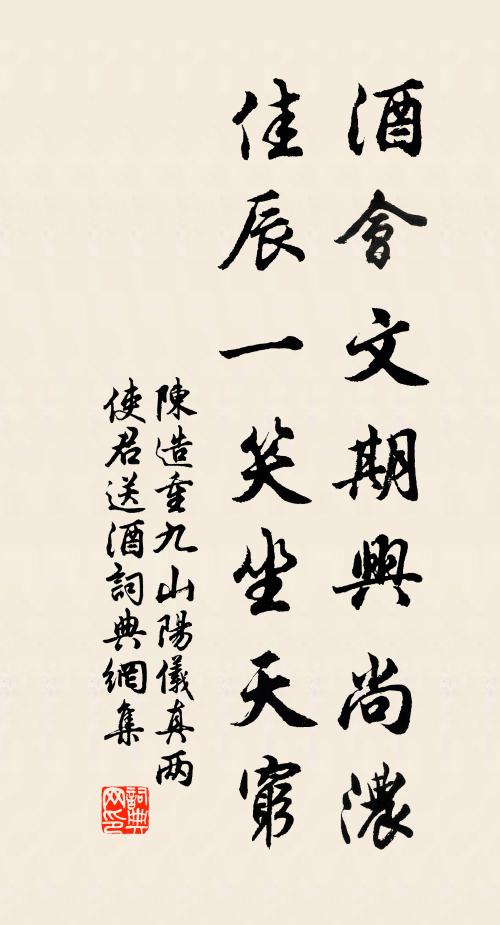 酒會文期興尚濃
佳辰一笑坐天窮
陳造重九山陽儀真两
使君送酒詞典網集
詞典網印